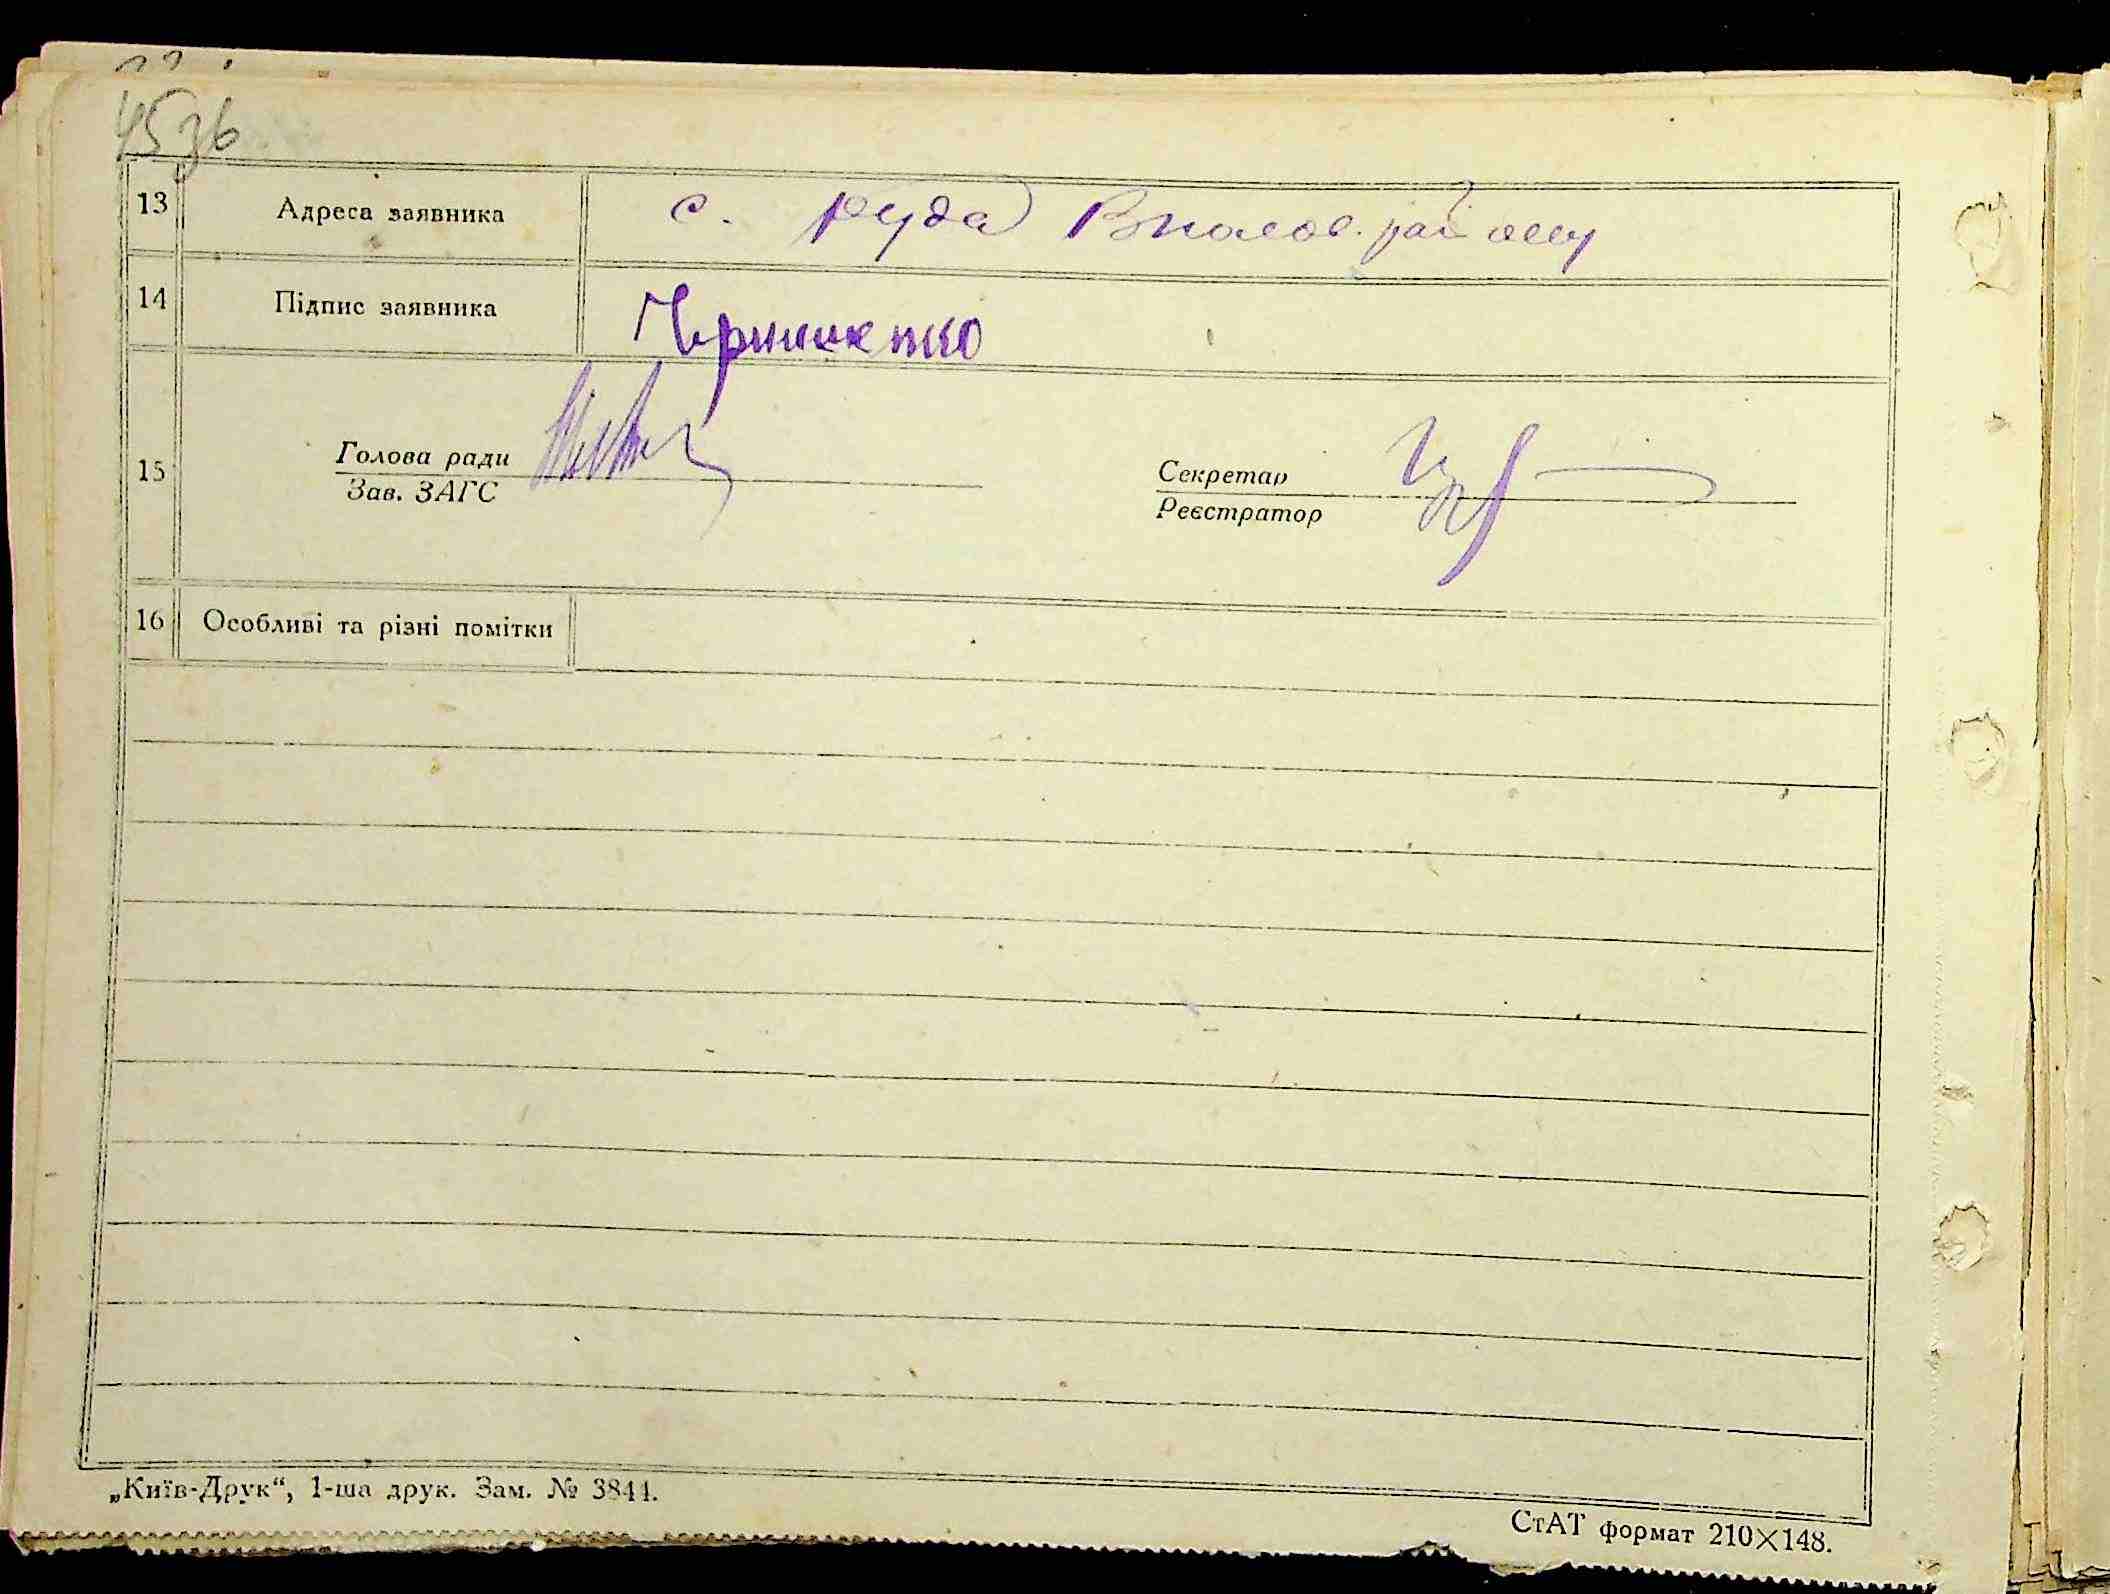 45зв
13 Адреса заявника с. Руда Вполов. району
14 Підпис заявника Чернишенко
15 Голова ради Секретар
Зав. ЗАГС Реєстратор
16 Особливі та різні помітки
„Київ-Друк“, 1-ша друк. Зам. № 3844.
СтАТ формат 210×148.